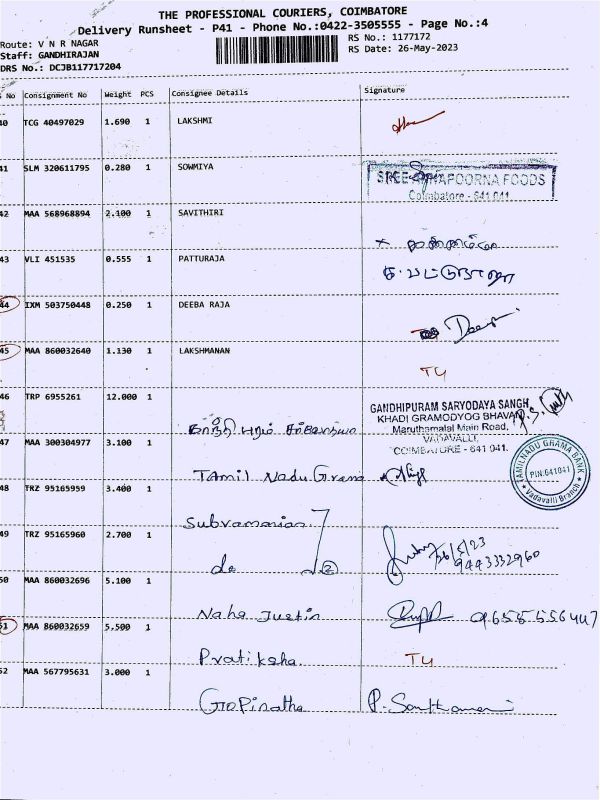 THE PROFESSIONAL COURIERS, COIMBATORE
Delivery Runsheet - P41 - Phone No.:0422-3505555 - Page No.:4
Route: V N R NAGAR
RS No.: 1177172
Staff: GANDHIRAJAN
RS Date: 26-May-2023
DRS No.: DCJB117717204
No Consignment No Weight PCS Consignee Details Signature
40 TCG 40497029 1.690 1 LAKSHMI
41 SLM 320611795 0.280 1 SOWMIYA
SREE ANNAPOORNA FOODS
Coimbatore - 641 041
42 MAA 568968894 2.100 1 SAVITHIRI
43 VLI 451535 0.555 1 PATTURAJA
44 IXM 503750448 0.250 1 DEEBA RAJA
45 MAA 860032640 1.130 1 LAKSHMANAN
T4
46 TRP 6955261 12.000 1
GANDHIPURAM SARVODAYA SANGH
KHADI GRAMODYOG BHAVAN
Maruthamalai Main Road,
VADAVALLI,
COIMBATORE - 641 041.
47 MAA 300304977 3.100 1
Tamil Nadu Grama
TAMILNADU GRAMA BANK
PIN:641041
Vadavalli Branch
48 TRZ 95165959 3.400 1
Subramanian
49 TRZ 95165960 2.700 1
do
2
26/5/23
9443332960
50 MAA 860032696 5.100 1
Naha Justin
9655556447
51 MAA 860032659 5.500 1
Pratiksha
T4
52 MAA 567795631 3.000 1
Gopinatha